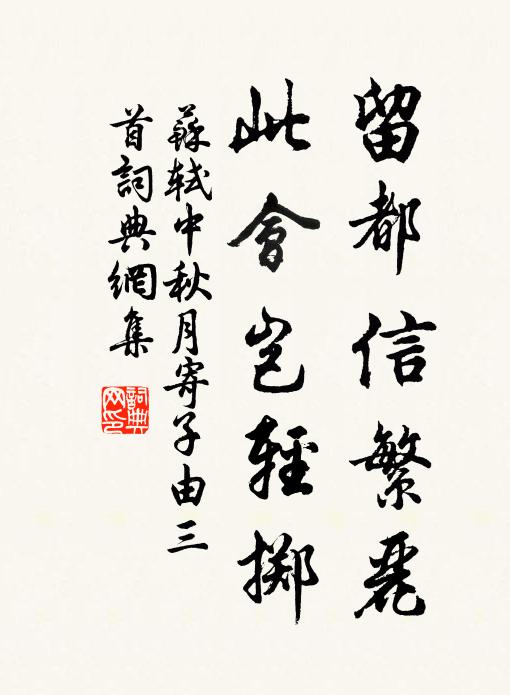 留都信繁麗
此會豈輕擲
蘇軾中秋月寄子由三
首詞典網集
詞典
网印